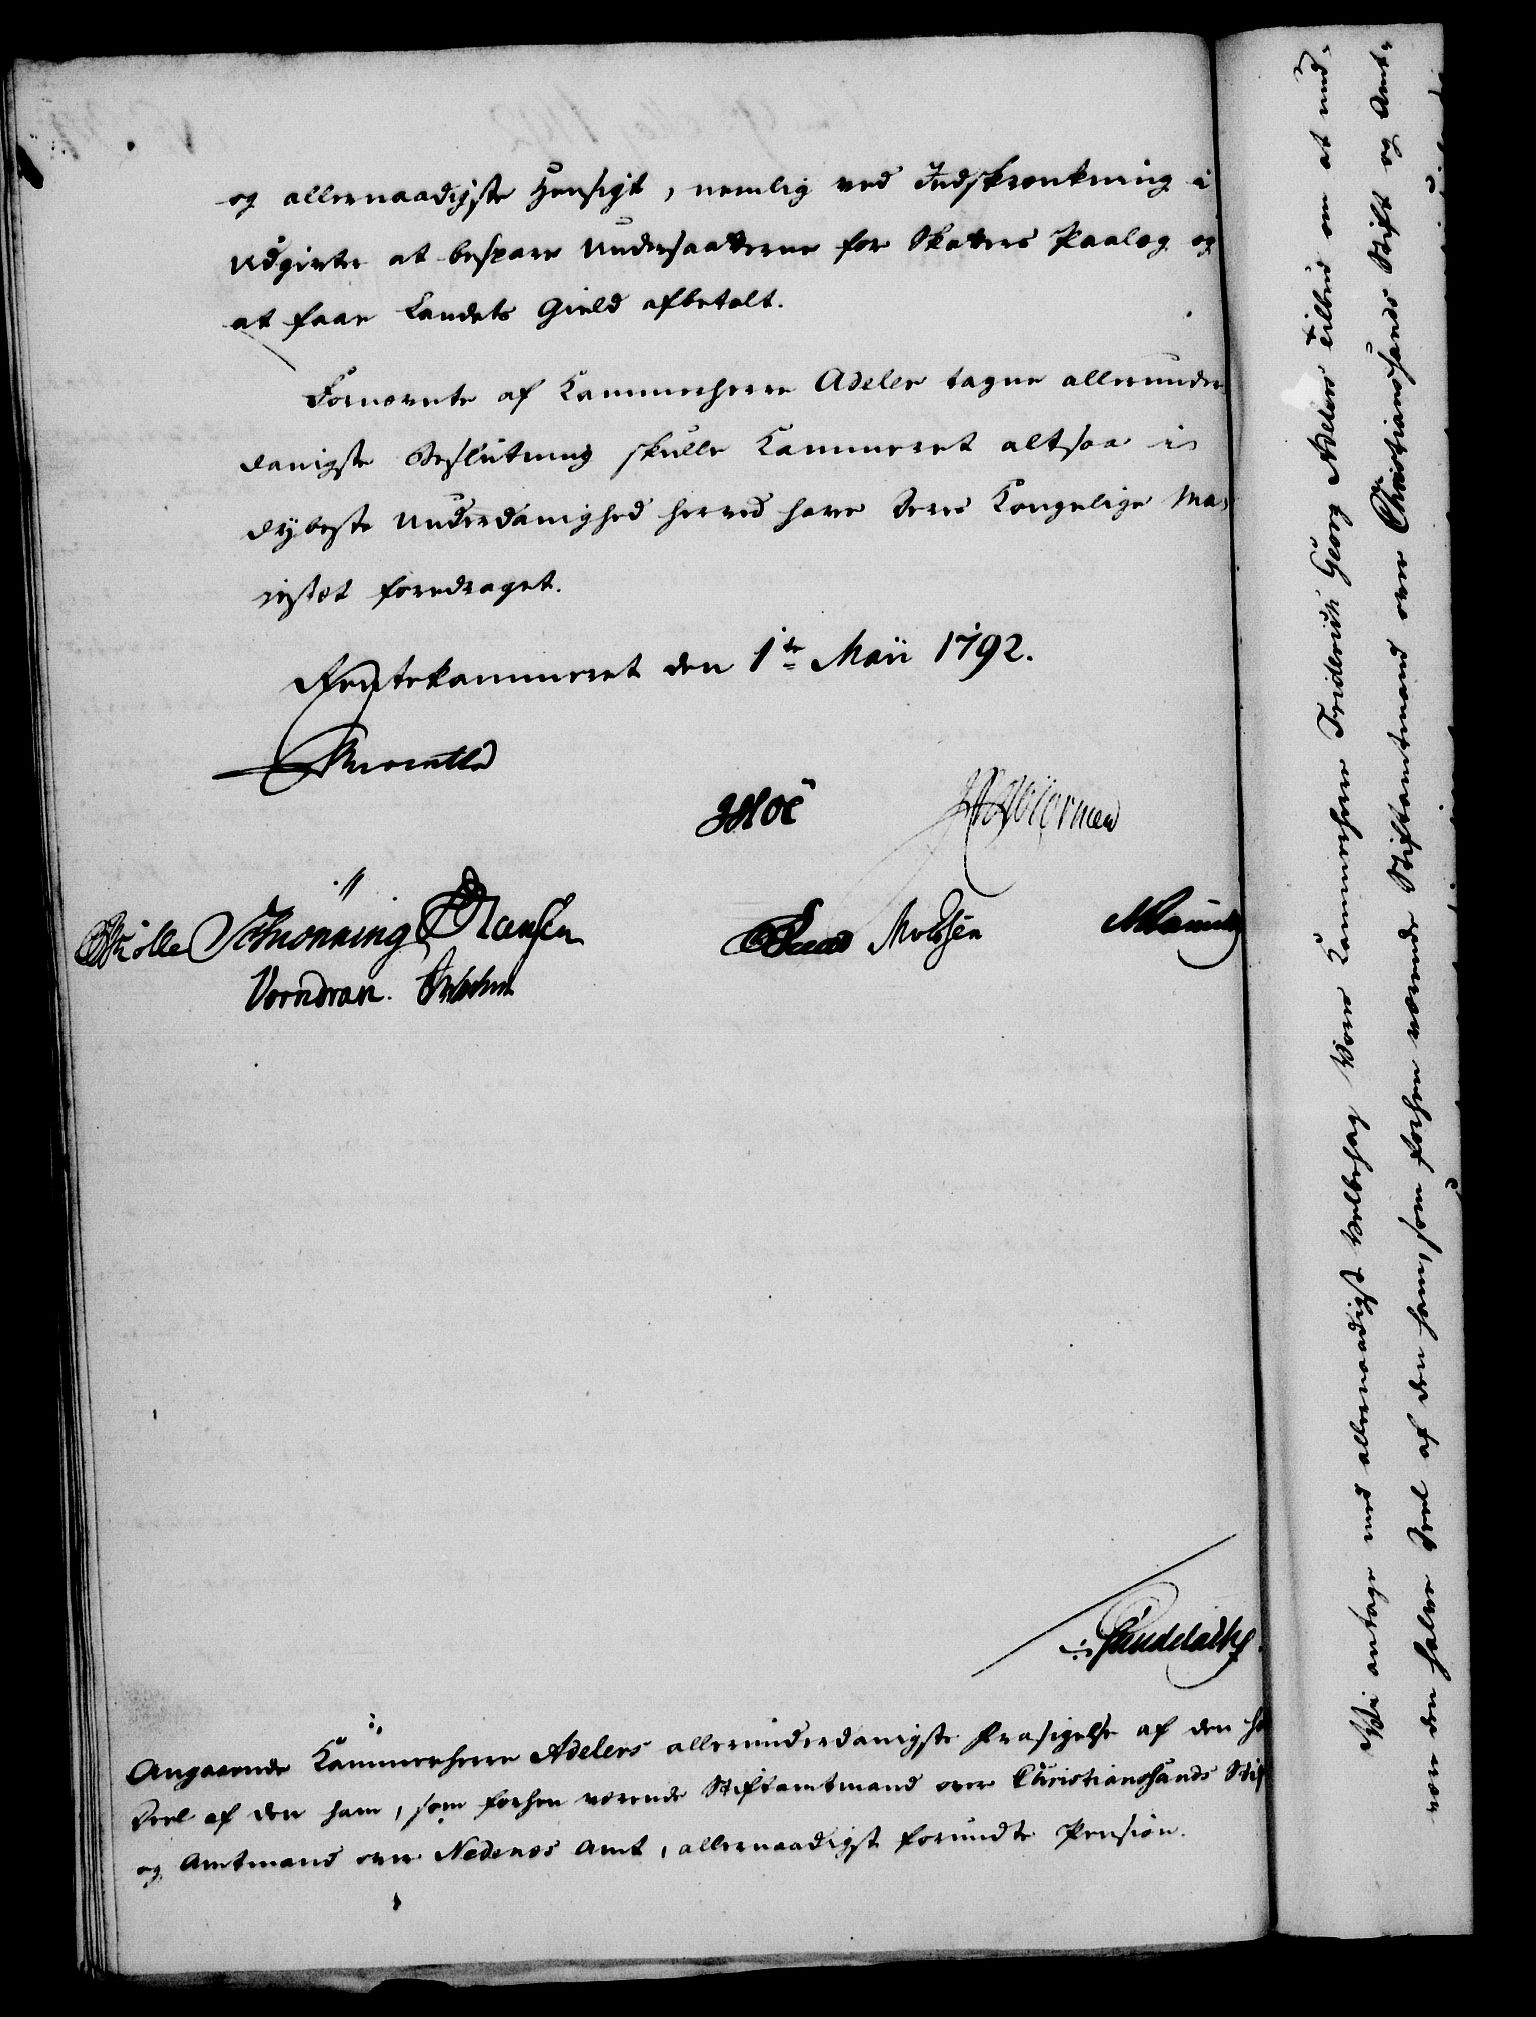 og allernaadigste Hensigt, nemlig ved Indskrænkning i
Udgivter at bespare Undersaatterne for Skatters Paalæg og
at faae Landets Gield afbetalt.
Fornævnte af Kammerherre Adeler tagne allerunder
danigste Beslutning skulle Kammeret altsaa i
dybeste Underdanighed herved have Deres Kongelige Ma¬
jestæt foredraget.
Rentekammeret den 1te Maii 1792.
Schmonning Hansen
Vorndran.
Angaaende Kammerherre Adelers allerunderdanigste Frasigelse af den ha
Deel af den ham, som forhen værende Stiftamtmand over Christiansands Stif
og Amtmand over Nedenes Amt, allernaadigst forundte Pension.
Vi antage med allernaadigst Velbehag Vores Kammerherre Friderich Georg Adelers Tilbud om at und¬
være den halve Deel af den ham, som forhen værende Stiftamtmand over Christiansands Stift og Amt¬